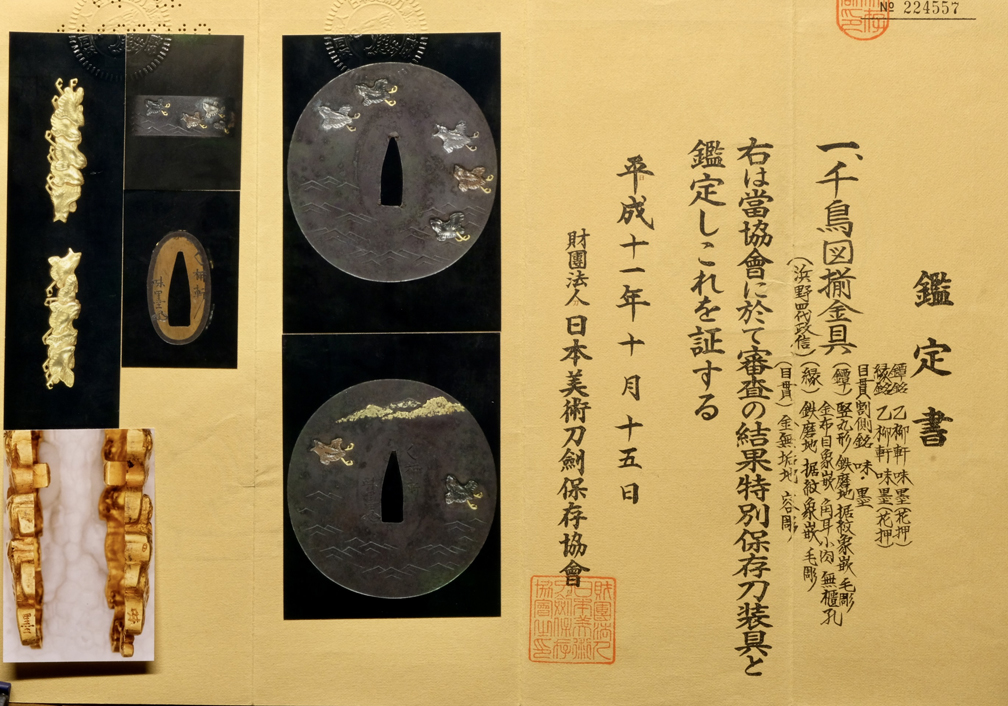 № 224557
鑑定書
鐔銘 乙柳軒味墨(花押)
縁銘 乙柳軒味墨(花押)
目貫割側銘 味・墨
一、千鳥図揃金具
(浜野四代政信)
(鐔) 竪丸形 鉄磨地 据紋象嵌 毛彫
金布目象嵌 角耳小肉 無櫃孔
(縁) 鉄磨地 据紋象嵌 毛彫
(目貫) 金無垢地 容彫
右は當協會に於て審査の結果特別保存刀装具と
鑑定しこれを証する
平成十一年十月十五日
財團法人 日本美術刀劍保存協會